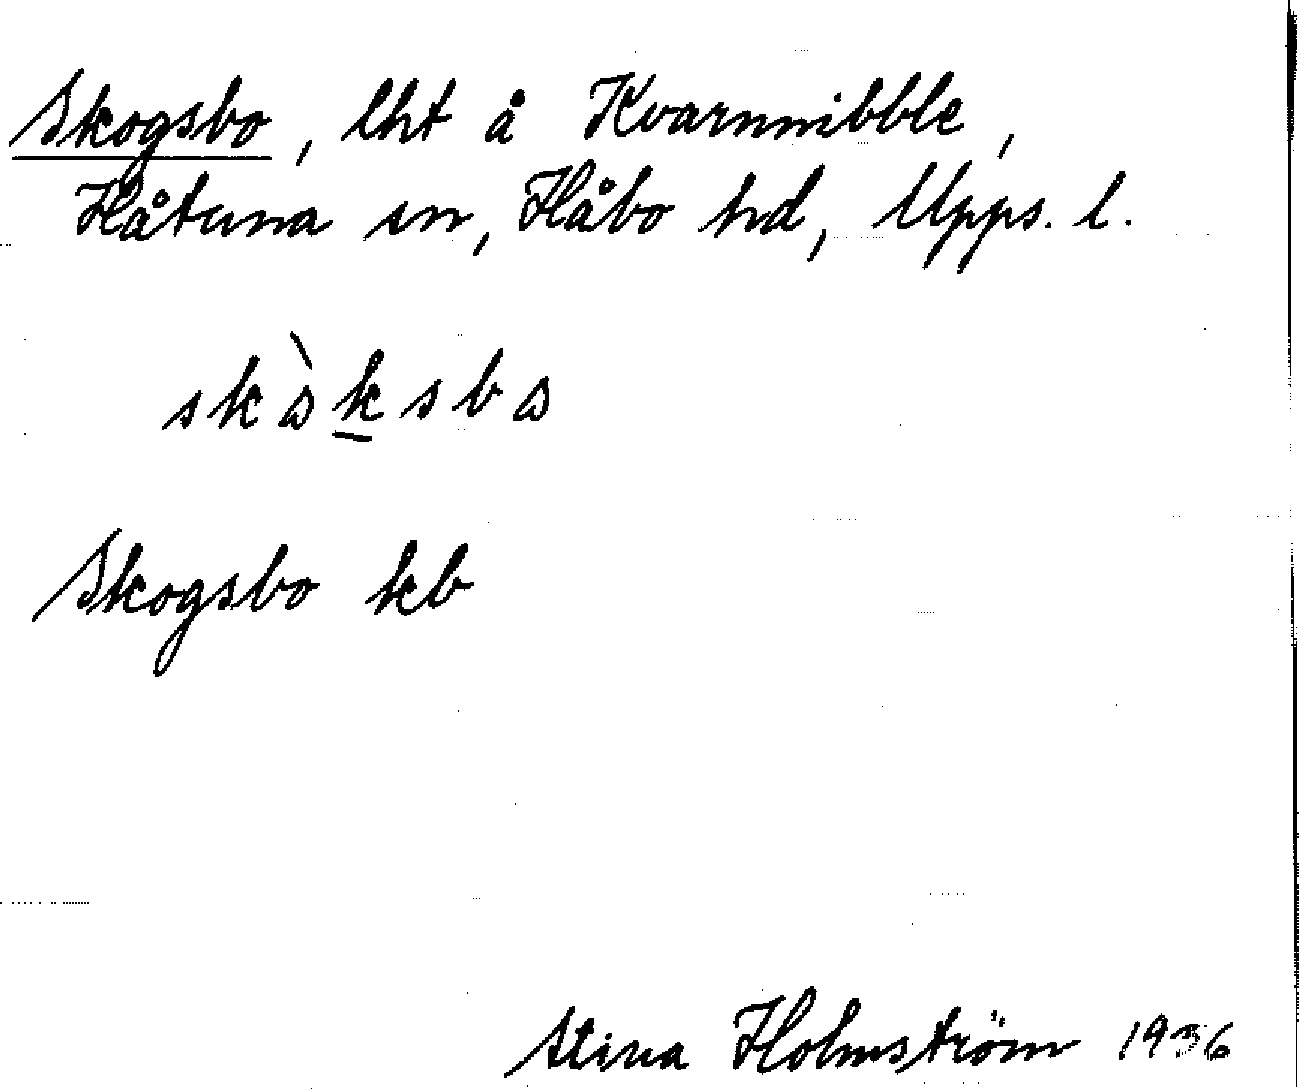 Skogsbo, lht å Kvarnnibble,
Håtuna sn, Håbo hd, Upps. l.
skὼksbω
Skogsbo kb
Stina Holmström 1936